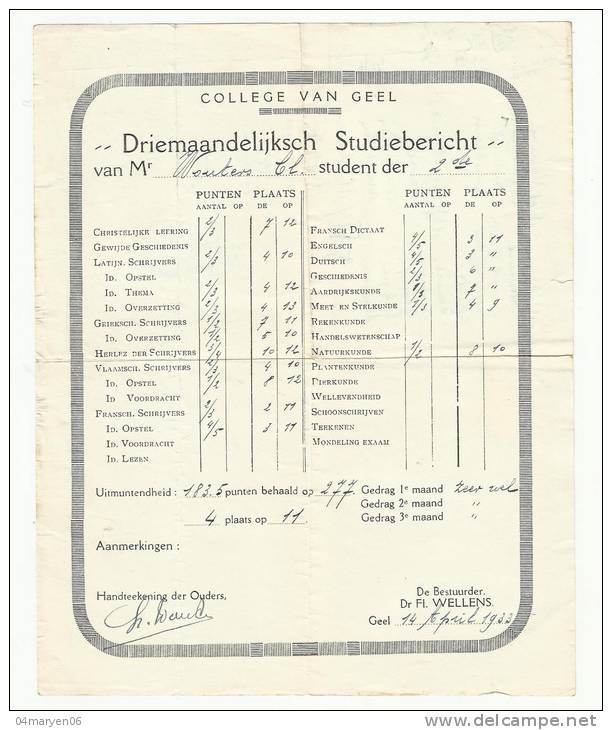 COLLEGE VAN GEEL
Driemaandelijksch Studiebericht
van Mr Wouters Cl. student der 2de
PUNTEN PLAATS
AANTAL OP DE OP
CHRISTELIJKE LEERING 2/3 7 12
GEWIJDE GESCHIEDENIS
LATIJN. SCHRIJVERS 2/3 4 10
ID. OPSTEL
ID. THEMA 2/3 4 12
ID. OVERZETTING 2/3 4 13
GRIEKSCH. SCHRIJVERS 1/2 7 11
ID. OVERZETTING 1/2 5 10
HERLEZ. DER SCHRIJVERS 10 12
VLAAMSCH. SCHRIJVERS 2/3 4 10
ID. OPSTEL 1/2 8 12
ID. VOORDRACHT
FRANSCH. SCHRIJVERS 2/3 2 11
ID. OPSTEL 4/5 3 11
ID. VOORDRACHT
ID. LEZEN
PUNTEN PLAATS
AANTAL OP DE OP
FRANSCH DICTAAT 4/5 3 11
ENGELSCH 4/5 3 "
DUITSCH 4/5 "
GESCHIEDENIS 2/3 6 "
AARDRIJKSKUNDE "
MEET EN STELKUNDE 4 9
REKENKUNDE
HANDELSWETENSCHAP
NATUURKUNDE 1/2 8 10
PLANTENKUNDE
DIERKUNDE
WELLEVENDHEID
SCHOONSCHRIJVEN
TEEKENEN
MONDELING EXAAM
Uitmuntendheid : 183.5 punten behaald op 277 Gedrag 1e maand zeer wel
Gedrag 2e maand "
4 plaats op 11 Gedrag 3e maand "
Aanmerkingen :
Handteekening der Ouders,
De Bestuurder.
Dr Fl. WELLENS.
Geel 14 April 1933
04maryen06
delcampe.net